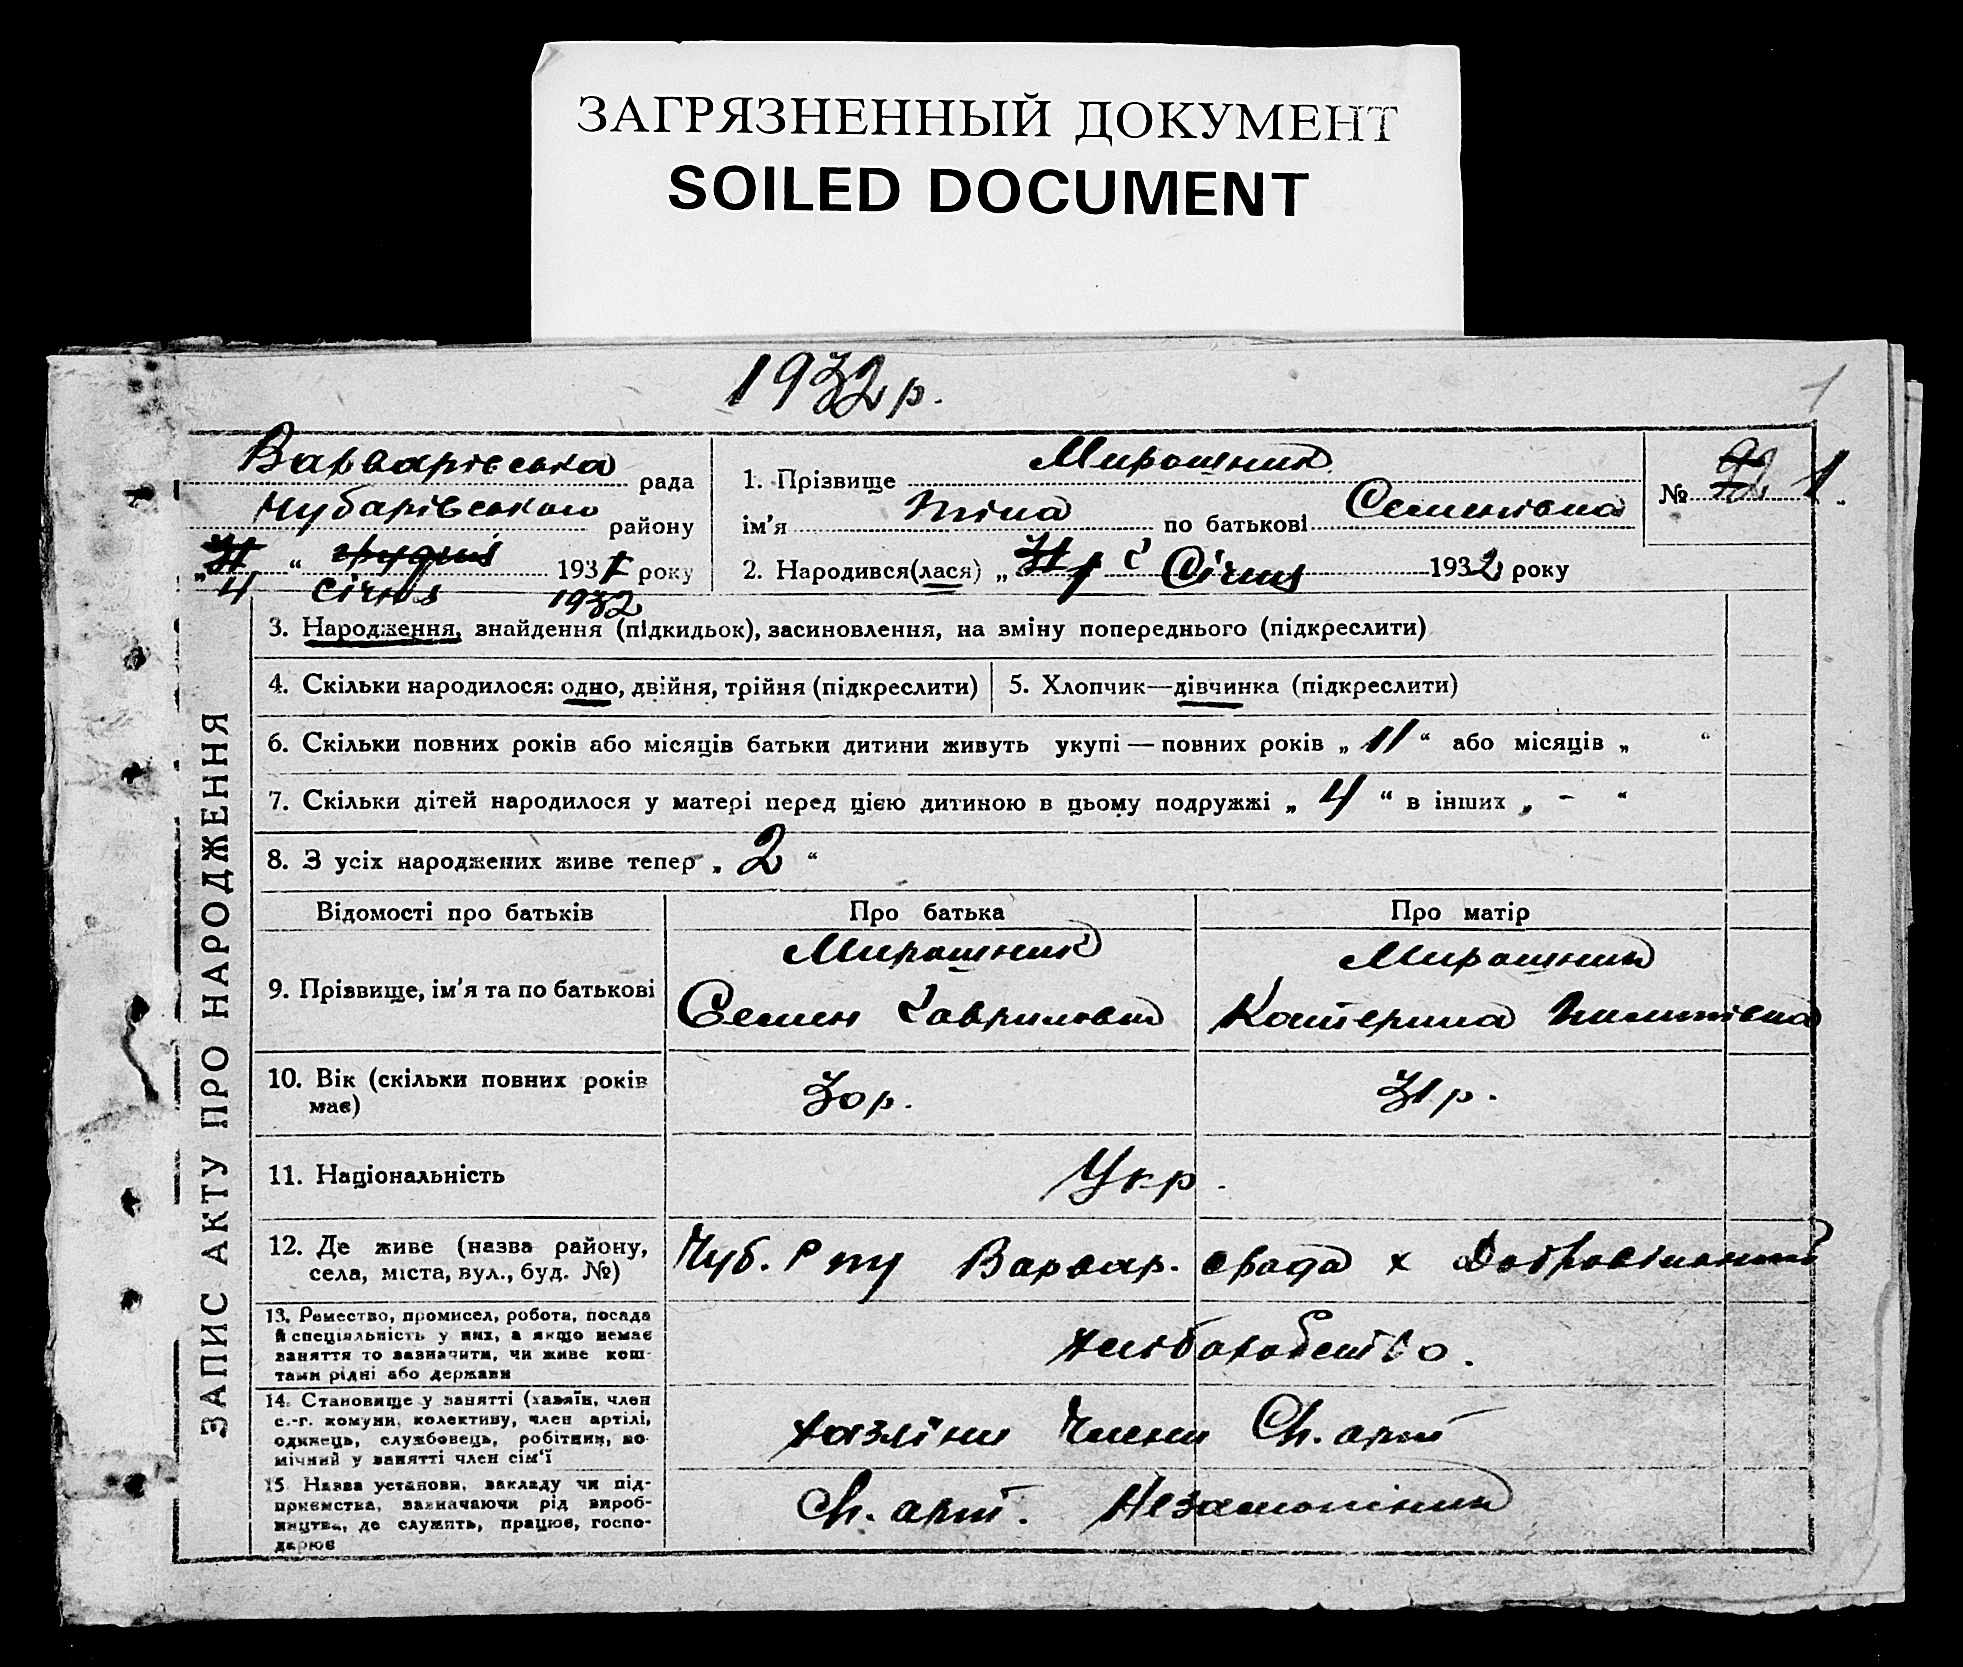 ЗАГРЯЗНЕННЫЙ ДОКУМЕНТ
SOILED DOCUMENT
1932 р.
1
Варварівська рада
Чубарівського району
„31“ грудня 1931 року
4 січня 1932
1. Прізвище Мирошник
ім'я по батькові Семенівна
№ 1.
2. Народився(лася) „31 1 Січня 1932 року
ЗАПИС АКТУ ПРО НАРОДЖЕННЯ
3. Народження, знайдення (підкидьок), засиновлення, на зміну попереднього (підкреслити)
4. Скільки народилося: одно, двійня, трійня (підкреслити)
5. Хлопчик—дівчинка (підкреслити)
6. Скільки повних років або місяців батьки дитини живуть укупі — повних років „11“ або місяців „ “
7. Скільки дітей народилося у матері перед цією дитиною в цьому подружжі „4“ в інших „-“
8. З усіх народжених живе тепер „2“
Відомості про батьків
Про батька
Про матір
9. Прізвище, ім'я та по батькові
Мирошник
Семен Гаврилович
Мирошник
Катерина
10. Вік (скільки повних років
має)
30 р.
31 р.
11. Національність
Укр.
12. Де живе (назва району,
села, міста, вул., буд. №)
Чуб. Р ну Варвар. с рада х
13. Ремество, промисел, робота, посада
й спеціяльність у них, а якщо немає
заняття то зазначити, чи живе кош-
тами рідні або держави
хліборобство.
14. Становище у занятті (хазяїн, член
с.-г. комуни, колективу, член артілі,
одинець, службовець, робітник, по-
мічний у занятті член сім'ї
хазяїни Члени Сг. арт
15 Назва установи, закладу чи під-
приємства, зазначаючи рід вироб-
ництва, де служить, працює, госпо-
дарює
Сг. арт. Незаможник